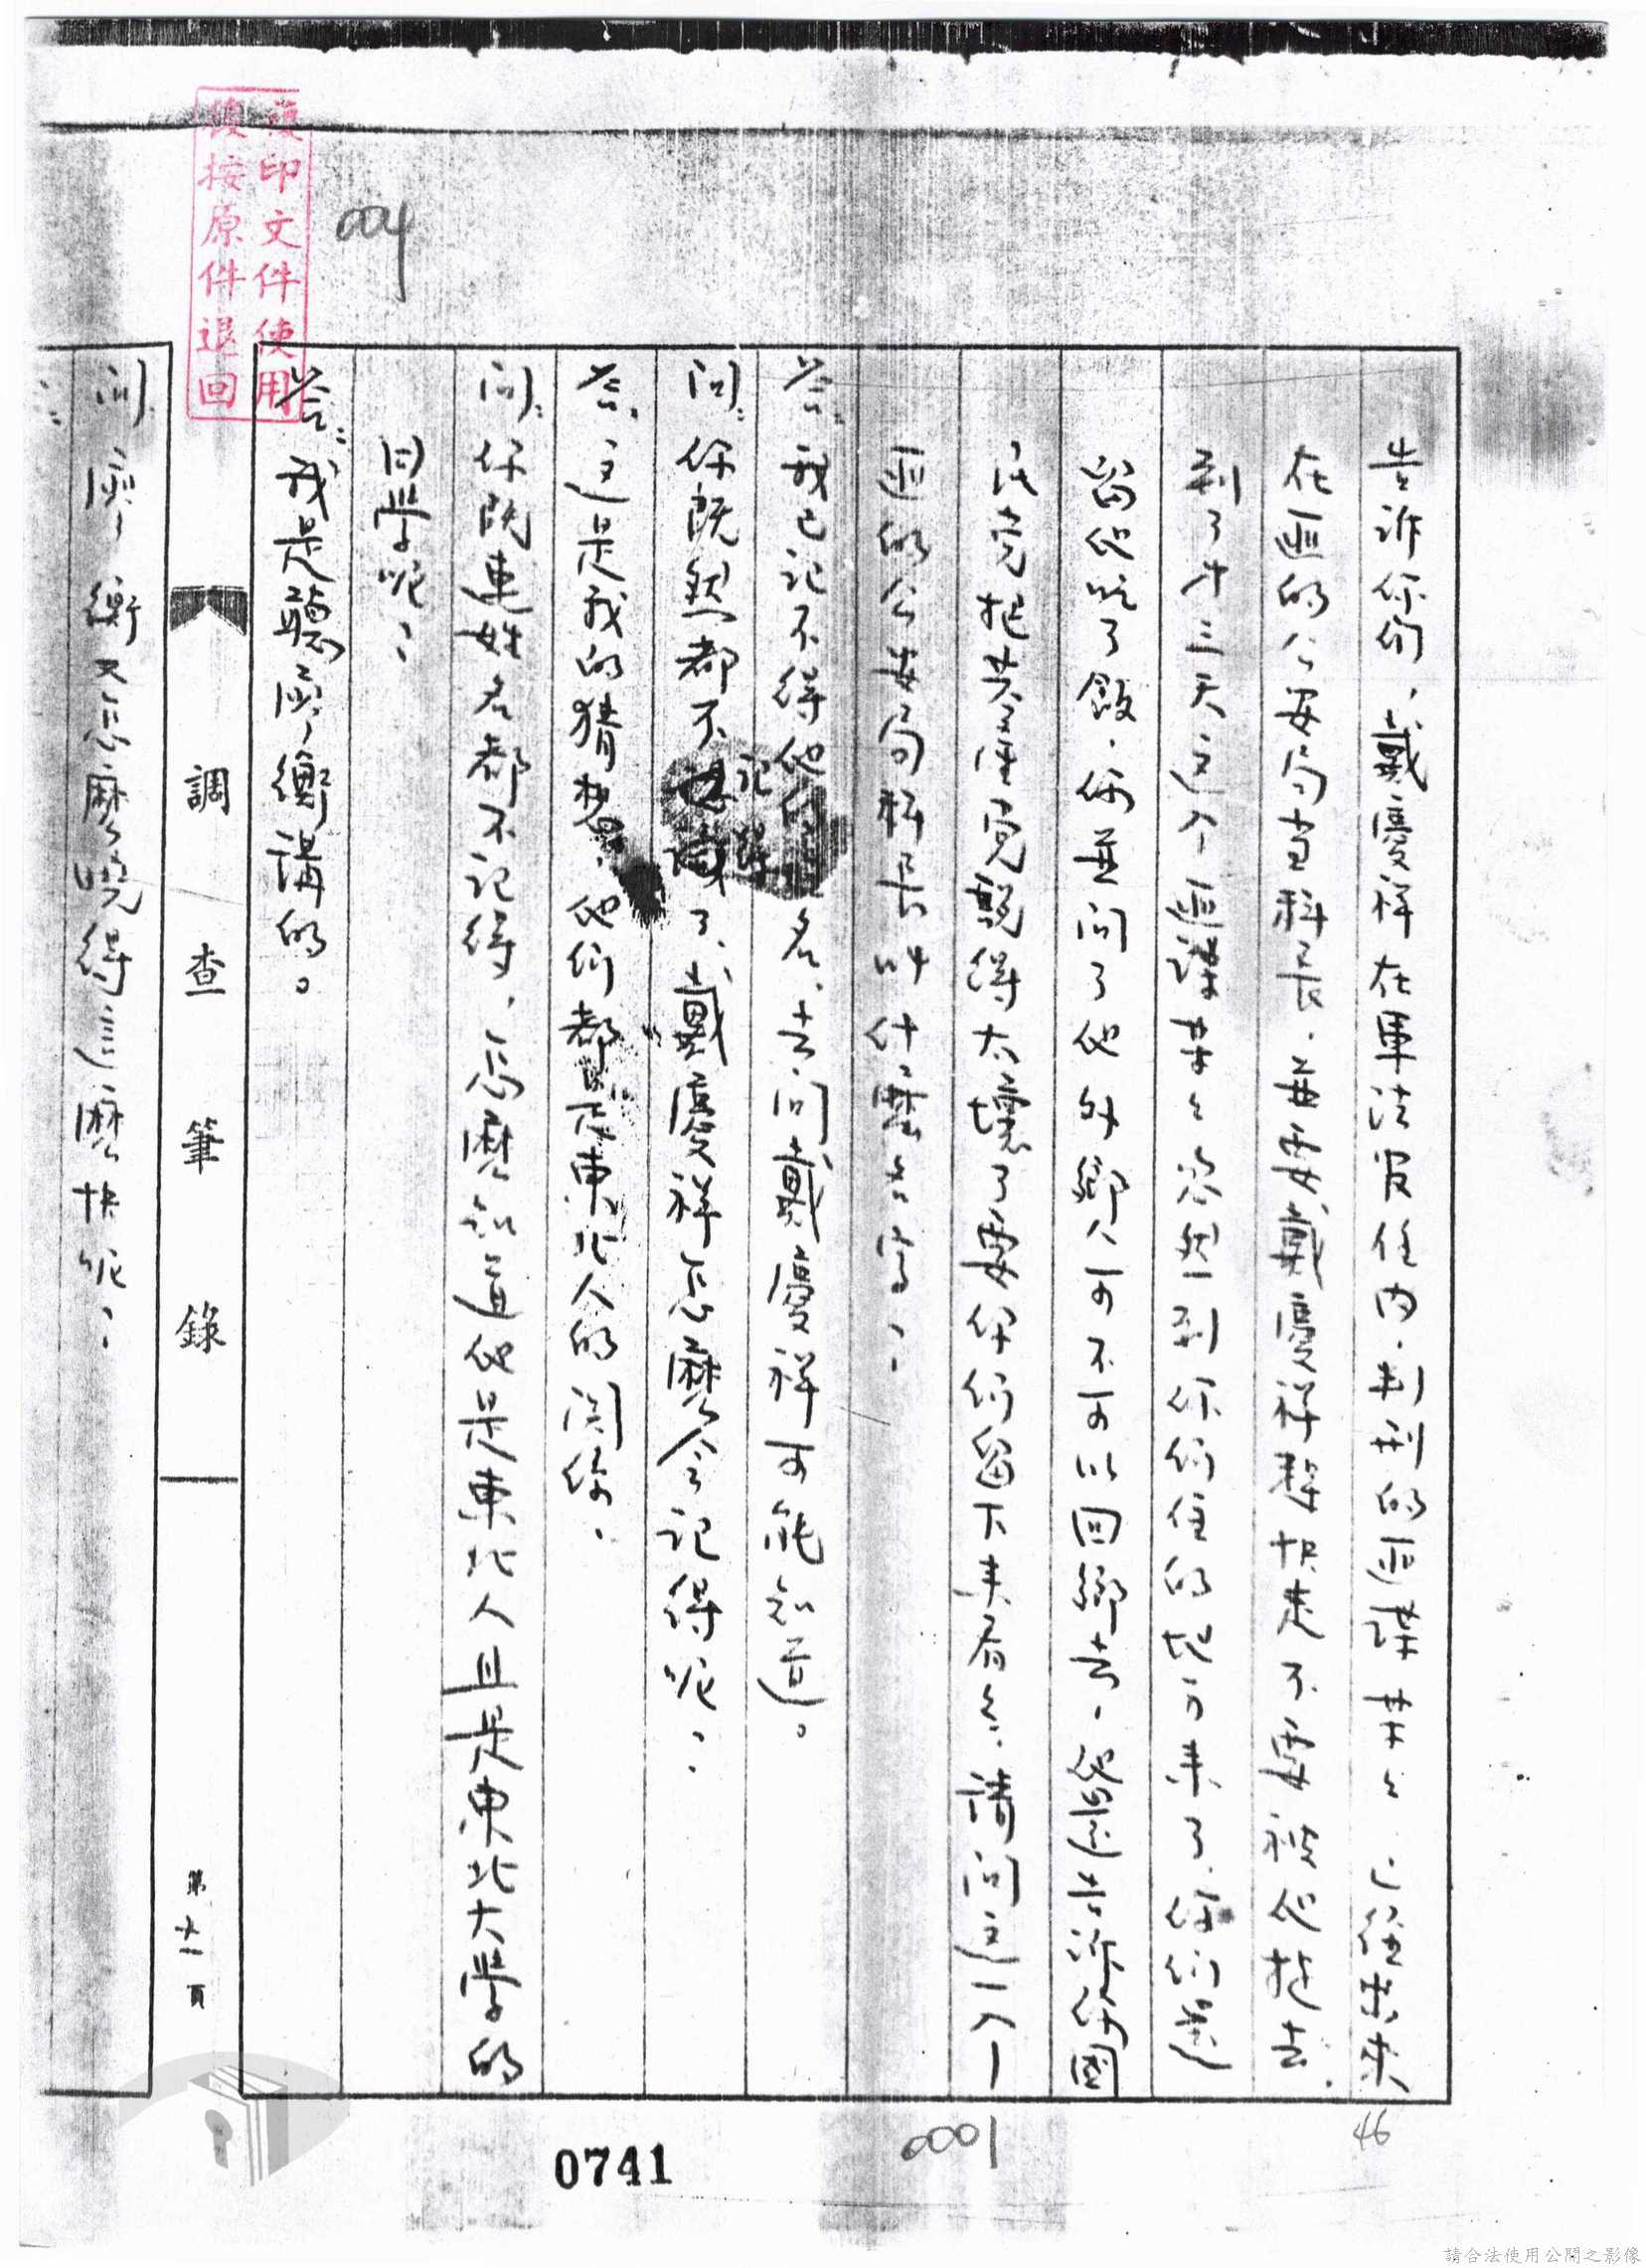 複印文件使用
後按原件退回
004
告訴你們,戴慶祥在軍法官任內,判刑的匪諜某某
在匪的公安局當科長,並要戴慶祥趕快走不要被他抓去
到了十三天這个匪諜某某忽然到你们住的地方来了,你们還
留他吃了飯,你並问了他外鄉人可不可以回鄉去,他還告訴你國
民党把共產党説得太壞了要你们留下来看看,請问这一个
匪的公安局科長叫什麼名字?
答:我已记不得他的姓名,去问戴慶祥可能知道。
问:你既然都不记得了,戴慶祥怎麼会记得呢?
答:这是我的猜想,他们都是東北人的関係。
问:你既連姓名都不记得,怎麼知道他是東北人且是東北大学的
同学呢?
答:我是聽廖衡講的。
調查筆錄
第十一頁
问:廖衡又怎麼曉得這麼快呢?
46
0001
0741
請合法使用公開之影像